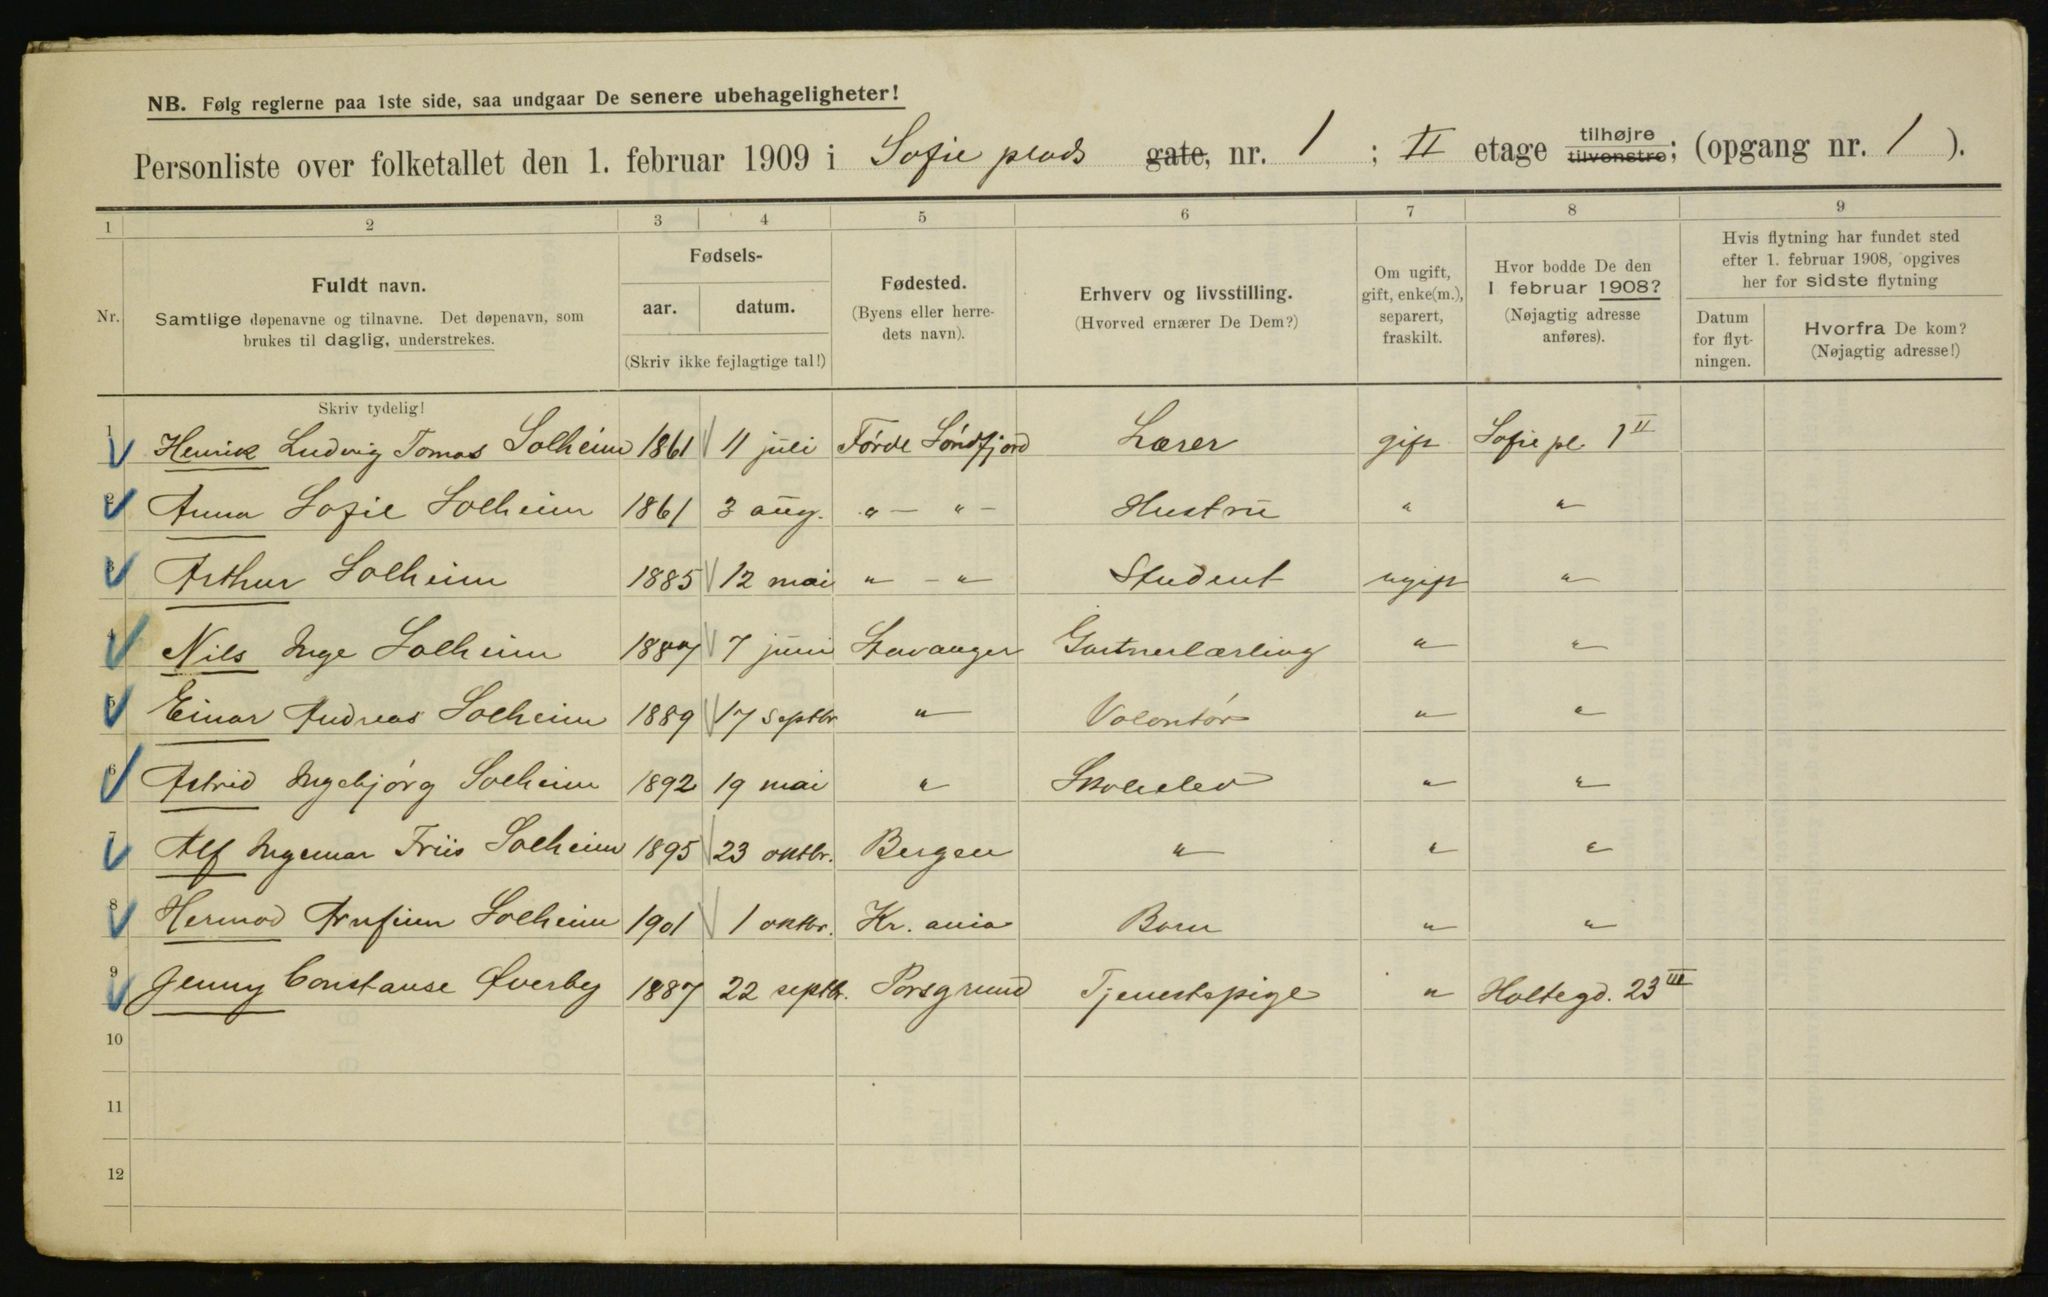 NB. Følg reglerne paa 1ste side, saa undgaar De senere ubehageligheter!
Personliste over folketallet den 1. februar 1909 i Sofie plads gate, nr. 1 ; II etage tilhøjre tilvenstre; (opgang nr. 1 ).
1 2 3 4 5 6 7 8 9
Nr.
Fuldt navn.
Samtlige døpenavne og tilnavne. Det døpenavn, som
brukes til daglig, understrekes.
Fødsels-
aar. datum.
(Skriv ikke fejlagtige tal!)
Fødested.
(Byens eller herre-
dets navn).
Erhverv og livsstilling.
(Hvorved ernærer De Dem?)
Om ugift,
gift, enke(m.),
separert,
fraskilt.
Hvor bodde De den
1 februar 1908?
(Nøjagtig adresse
anføres).
Hvis flytning har fundet sted
efter 1. februar 1908, opgives
her for sidste flytning
Datum
for flyt-
ningen.
Hvorfra De kom?
(Nøjagtig adresse!)
Skriv tydelig!
1 Henrik Ludvig Tomas Solheim 1861 11 juli Förde Söndfjord Lærer gift Sofie pl. 1 II
2 Anna Sofie Solheim 1861 3 aug. " — " — Hustru " "
3 Arthur Solheim 1885 12 mai " — " Student ugift "
4 Nils Inge Solheim 1887 7 juni Stavanger Gartnerlærling " "
5 Einar Andreas Solheim 1889 17 septbr " Volontör " "
6 Astrid Ingebjörg Solheim 1892 19 mai " Skoleelev " "
7 Alf Ingemar Friis Solheim 1895 23 oktbr. Bergen " " "
8 Hermod Arnfinn Solheim 1901 1 oktbr. Kr. ania Barn " "
9 Jenny Constanse Øverby 1887 22 septbr. Porsgrund Tjenestepige " Holtegd. 23 III
10
11
12